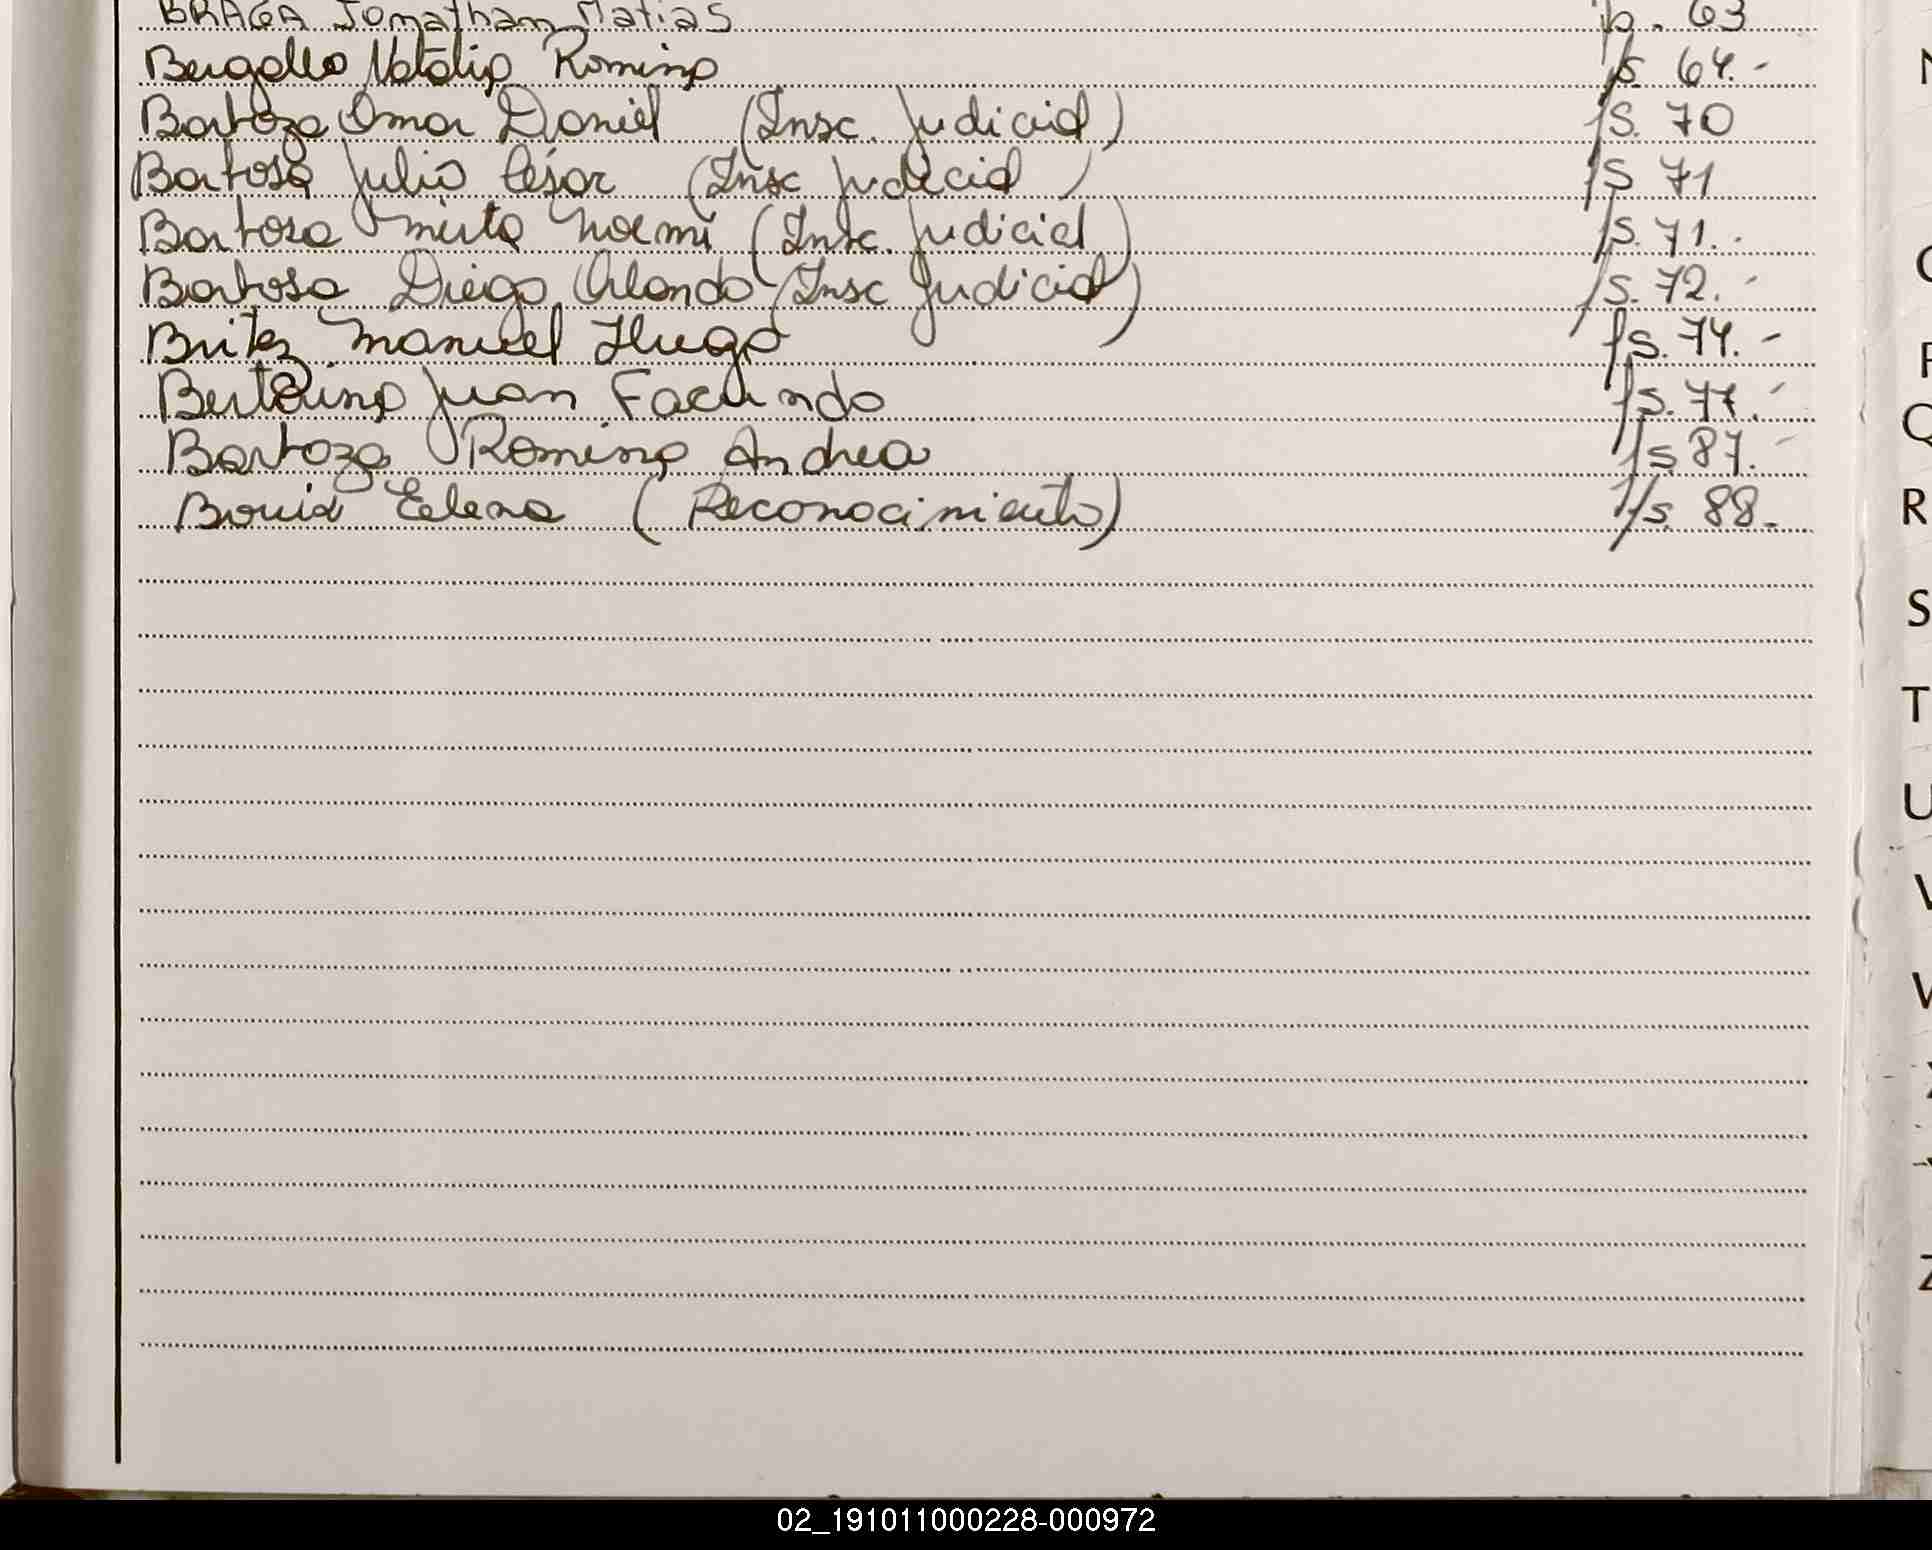 BRAGA Jonathan Matias fs. 63
Bergallo Natalia Romina fs. 64.-
Barboza Omar Daniel (Insc. Judicial) fs. 70
Barbosa Julio César (Insc Judicial) fs 71
Barbosa Mirta Noemi (Insc. Judicial) fs. 71.-
Barbosa Diego Orlando (Insc Judicial) fs. 72.-
Britez Manuel Hugo fs. 74.-
Juan Facundo fs. 77.-
Barboza Romina Andrea fs. 87.-
Elena (Reconocimiento) fs. 88.-
N
Q
R
S
T
U
V
W
X
Y
Z
02_191011000228-000972